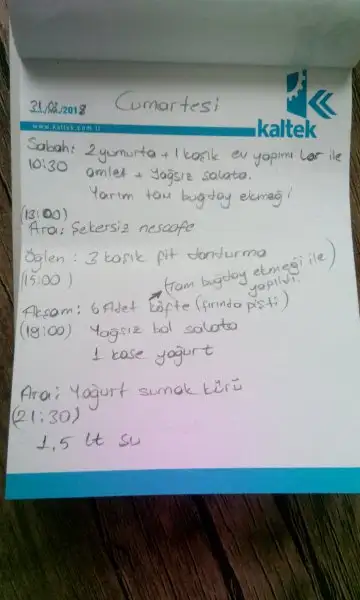 31/03/2018 Cumartesi
www.kaltek.com.tr
kaltek
Sabah: 2 yumurta + 1 kaşık ev yapımı lor ile
10:30 omlet + Yağsız salata.
Yarım tam buğday ekmeği
(13:00)
Ara: Şekersiz nescafe
Öğlen : 3 kaşık fit dondurma
(15:00)
(tam buğday ekmeği ile yapıldı.)
Akşam : 6 Adet köfte (fırında pişti)
(18:00) Yağsız bol salata
1 kase yoğurt
Ara: Yoğurt sumak kürü
(21:30)
1,5 lt su